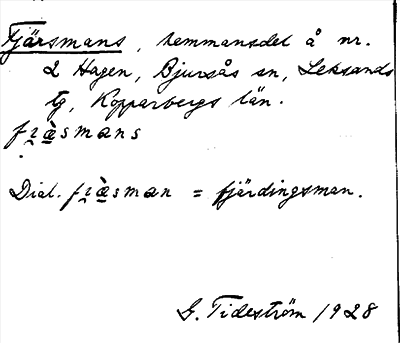 Fjärsmans, hemmansdel å nr.
2 Hagen, Bjursås sn, Leksands
tg, Kopparbergs län.
fi̯æ̀smans
Dial. fi̯æ̀sman = fjärdingsman.
G. Tideström 1928